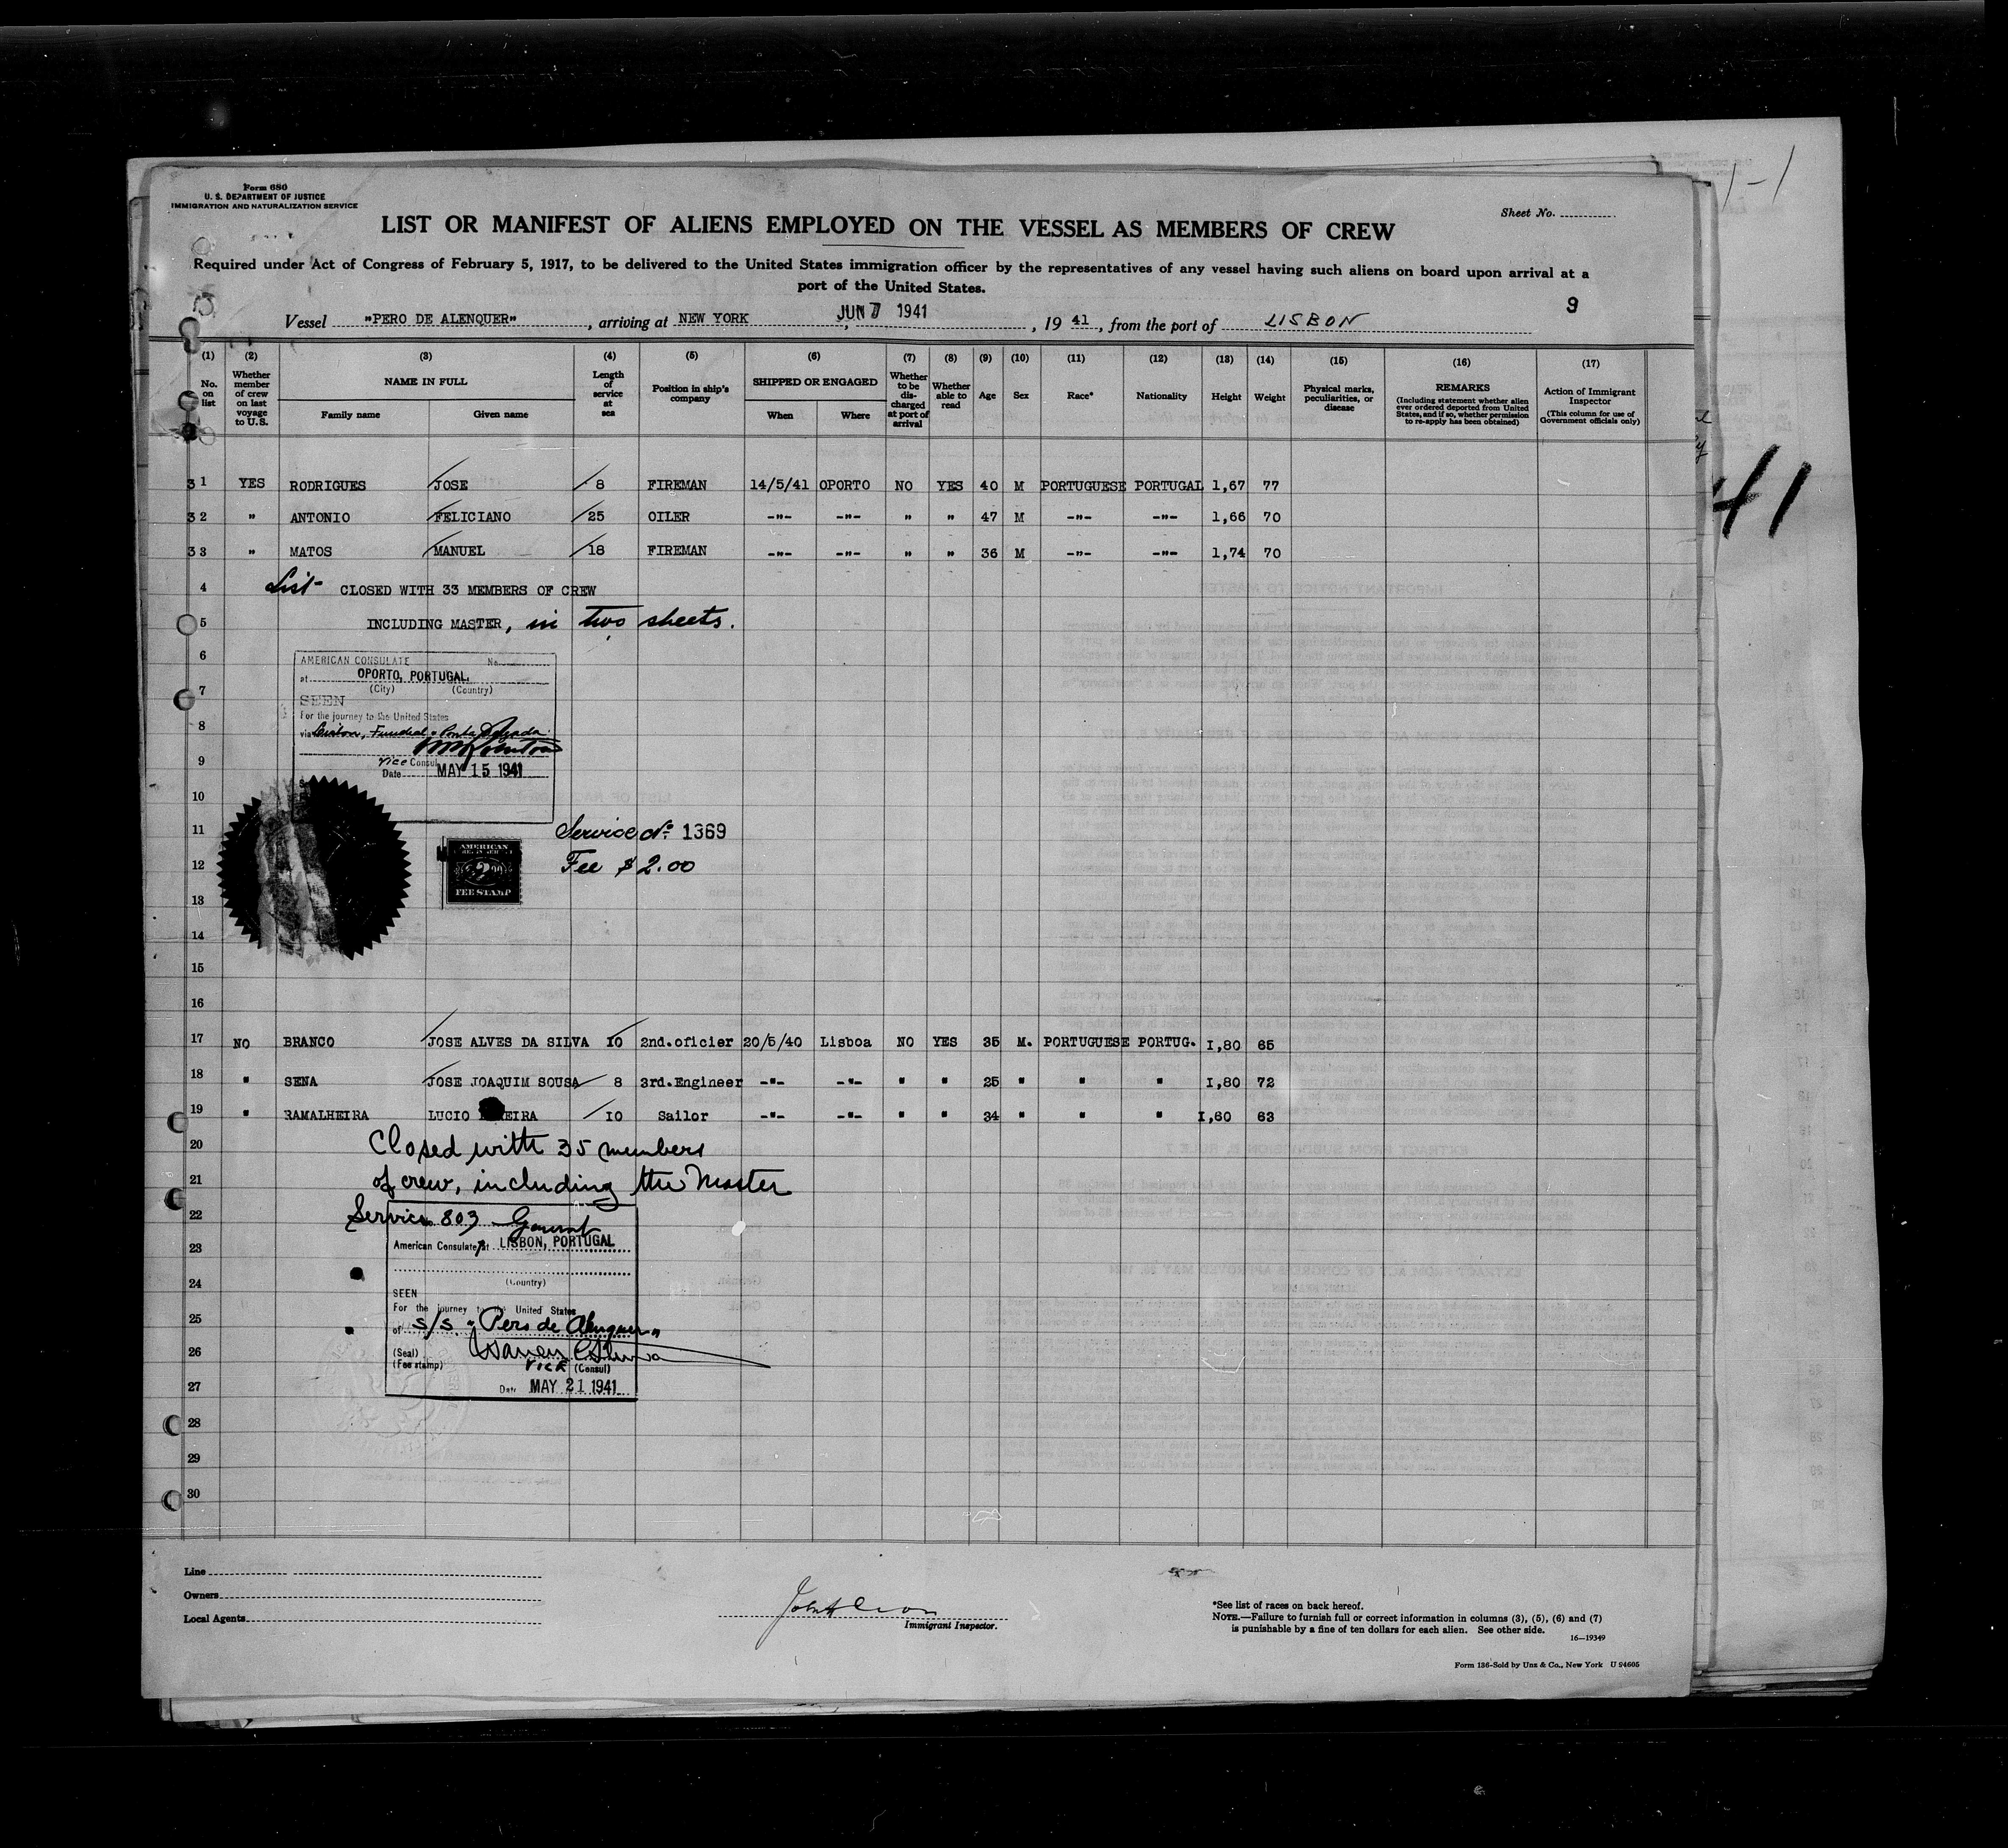 Form 680
U. S. DEPARTMENT OF JUSTICE
IMMIGRATION AND NATURALIZATION SERVICE
Sheet No.
LIST OR MANIFEST OF ALIENS EMPLOYED ON THE VESSEL AS MEMBERS OF CREW
Required under Act of Congress of February 5, 1917, to be delivered to the United States immigration officer by the representatives of any vessel having such aliens on board upon arrival at a
port of the United States.
9
Vessel "PERO DE ALENQUER", arriving at NEW YORK JUN 7 1941, 19 41, from the port of LISBON
(1) (2) (3) (4) (5) (6) (7) (8) (9) (10) (11) (12) (13) (14) (15) (16) (17)
No. on list
Whether member of crew on last voyage to U.S.
NAME IN FULL
Family name
Given name
Length of service at sea
Position in ship's company
SHIPPED OR ENGAGED
When
Where
Whether to be discharged at port of arrival
Whether able to read
Age
Sex
Race*
Nationality
Height
Weight
Physical marks, peculiarities, or disease
REMARKS
(Including statement whether alien ever ordered deported from United States, and if so, whether permission to re-apply has been obtained)
Action of Immigrant Inspector
(This column for use of Government officials only)
31 YES RODRIGUES JOSE 8 FIREMAN 14/5/41 OPORTO NO YES 40 M PORTUGUESE PORTUGAL 1,67 77
32 " ANTONIO FELICIANO 25 OILER -"- -"- " " 47 M -"- -"- 1,66 70
33 " MATOS MANUEL 18 FIREMAN -"- -"- " " 36 M -"- -"- 1,74 70
4 List CLOSED WITH 33 MEMBERS OF CREW
5 INCLUDING MASTER, in two sheets.
6
7
8
9
10
11
12
13
14
15
16
AMERICAN CONSULATE No.
at OPORTO, PORTUGAL.
(City) (Country)
SEEN
For the journey to the United States
via Lisbon, Funchal & Ponta Delgada.
Vice Consul
Date MAY 15 1941
Service No. 1369
Fee $2.00
AMERICAN
FEE STAMP
17 NO BRANCO JOSE ALVES DA SILVA 10 2nd.oficier 20/5/40 Lisboa NO YES 35 M. PORTUGUESE PORTUG. I,80 65
18 " SENA JOSE JOAQUIM SOUSA 8 3rd.Engineer -"- -"- " " 25 " " " I,80 72
19 " RAMALHEIRA LUCIO EIRA 10 Sailor -"- -"- " " 34 " " " I,60 63
20 Closed with 35 members
21 of crew, including the Master
22 Service 803
23
24
25
26
27
28
29
30
American Consulate at LISBON, PORTUGAL
(Country)
SEEN
For the journey to the United States
of S/S "Pero de Alenquer"
(Seal)
(Fee stamp)
VICE (Consul)
Date MAY 21 1941
Line
Owners
Local Agents
Immigrant Inspector.
*See list of races on back hereof.
NOTE.—Failure to furnish full or correct information in columns (3), (5), (6) and (7)
is punishable by a fine of ten dollars for each alien. See other side.
16—19349
Form 136-Sold by Unz & Co., New York U 94605
41